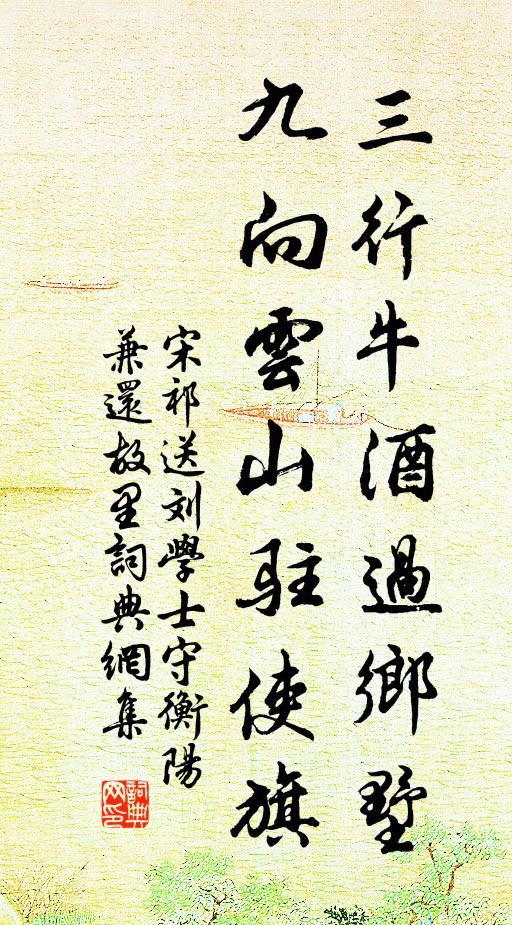 三行牛酒過鄉墅
九向雲山駐使旗
宋祁送刘學士守衡陽
兼還故里詞典網集
詞典网印